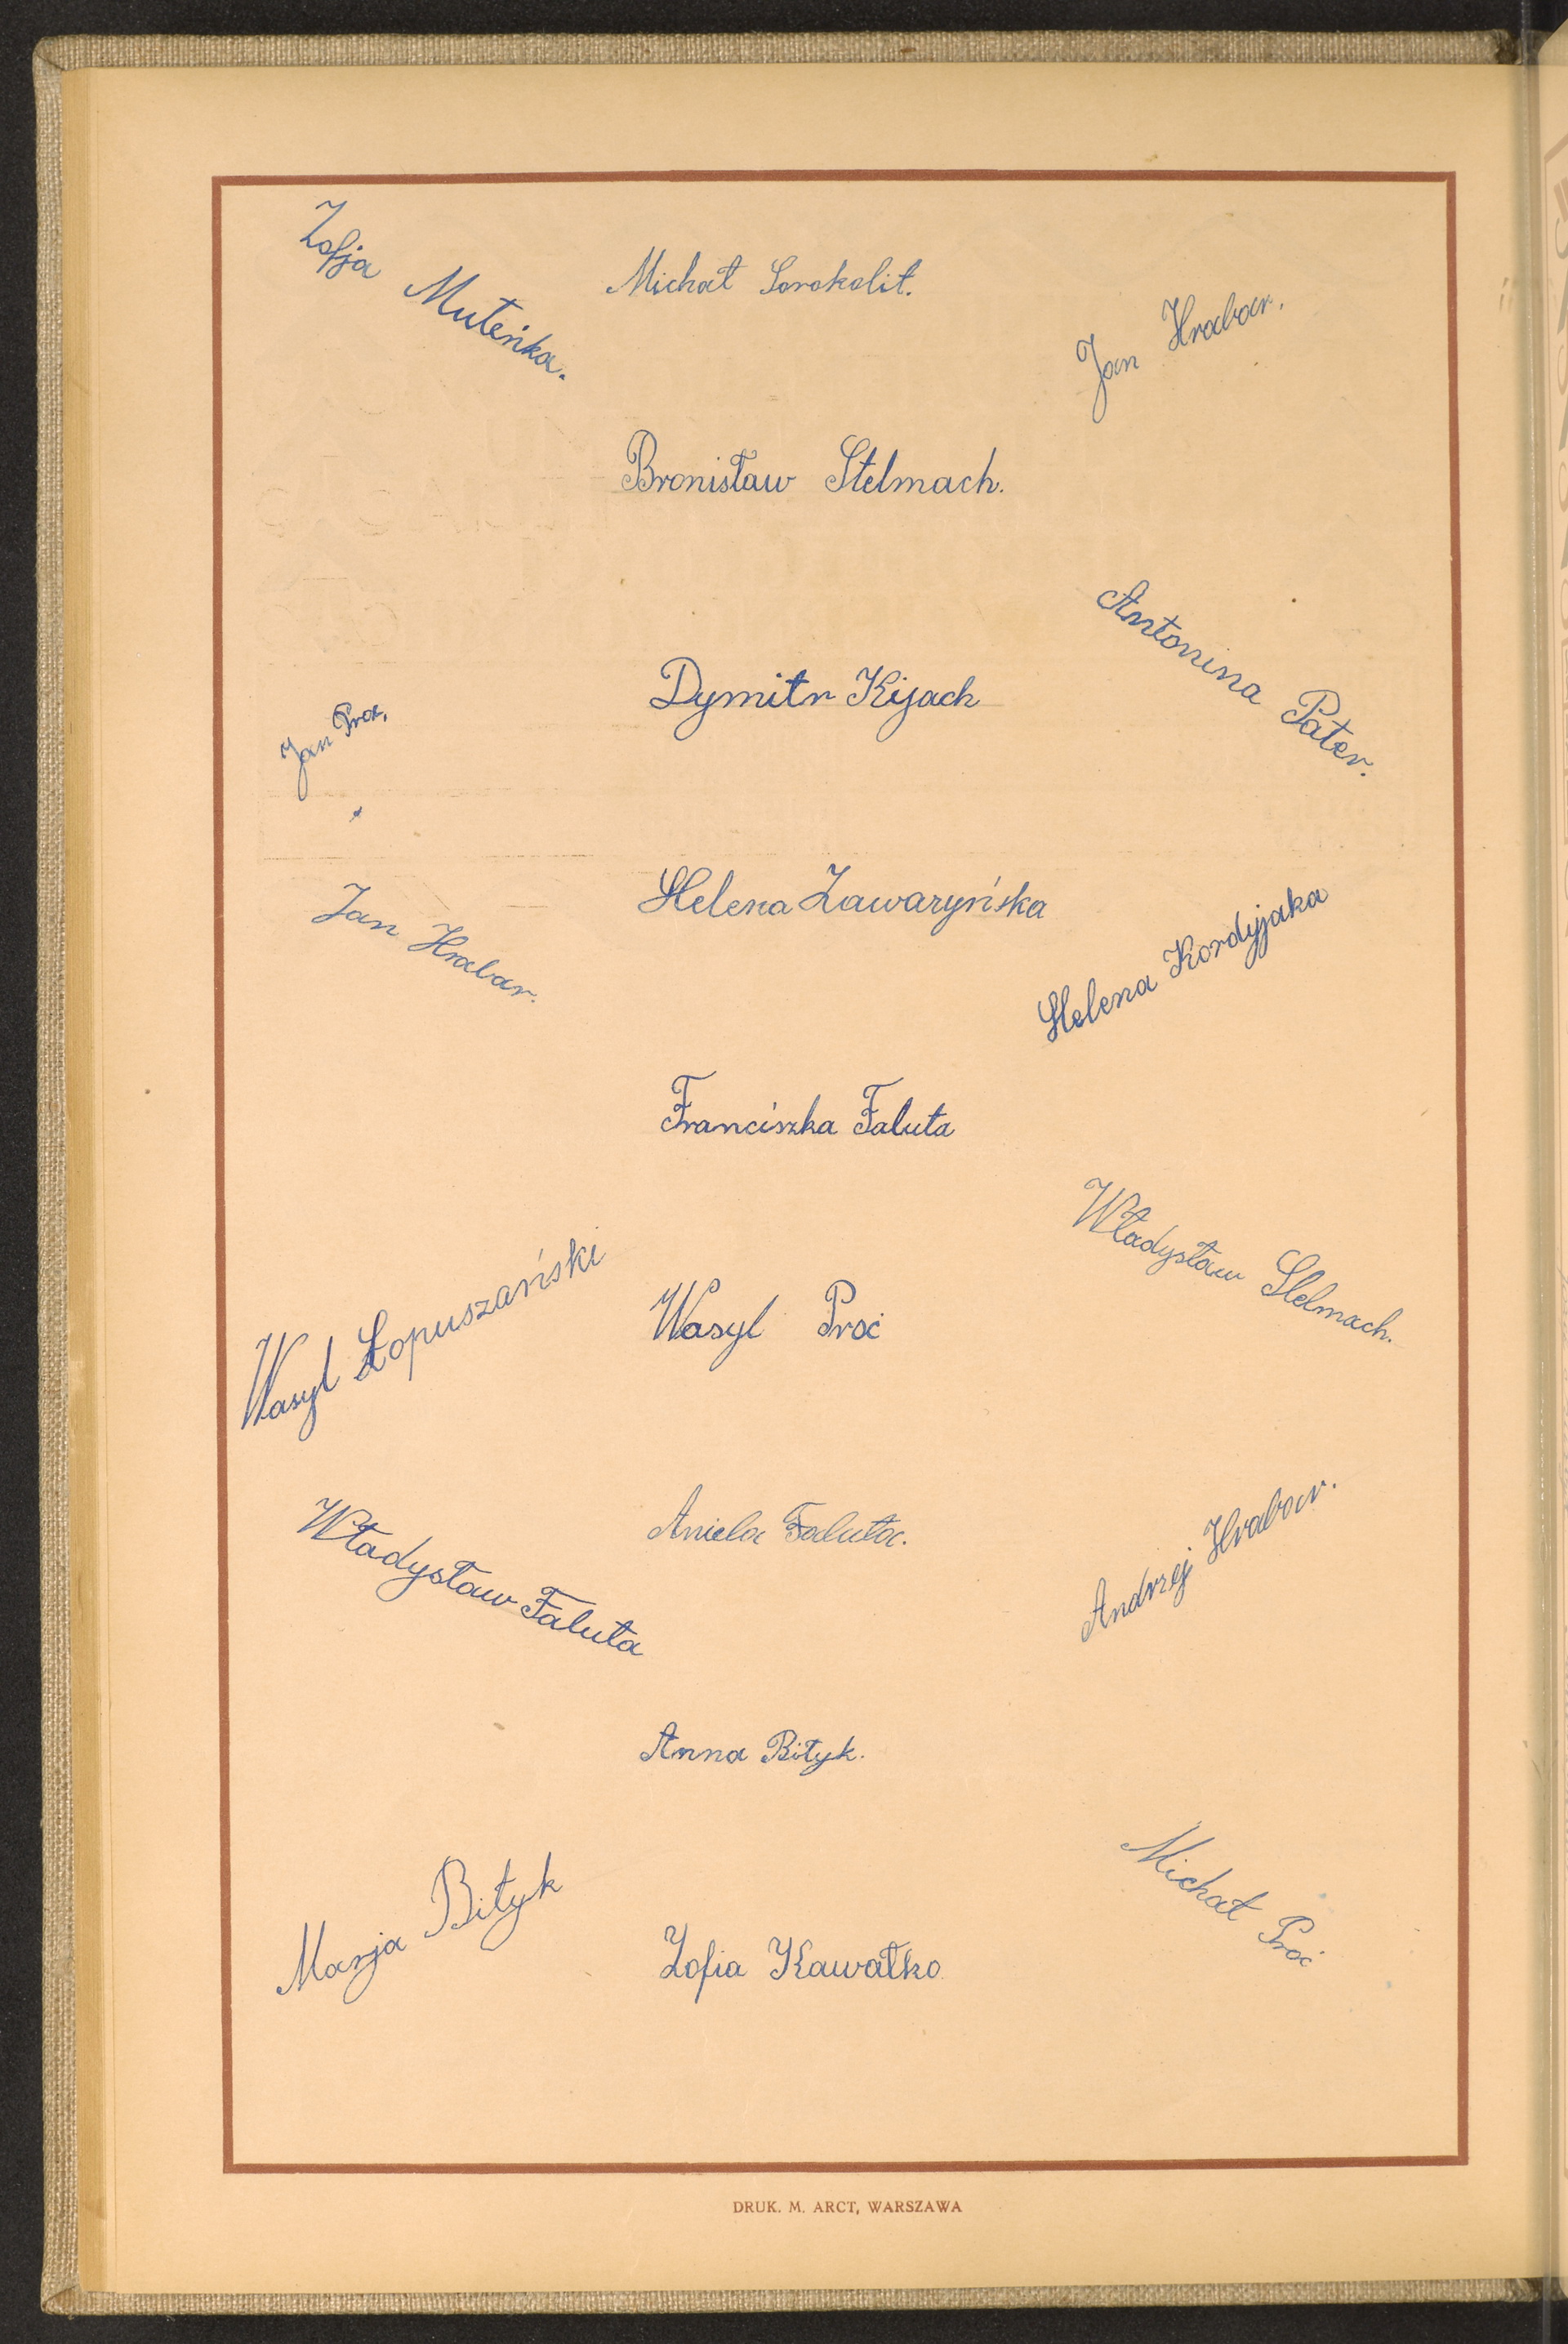 Zofja Muteńka.
Michał Sorokolit.
Jan Hrabar.
Bronisław Stelmach.
Antonina Pater.
Dymitr Kijach
Jan Proć,
Helena Zawaryńska
Jan Hrabar.
Helena Kordyjaka
Franciszka Faluta
Władysław Stelmach.
Wasyl Łopuszański
Wasyl Proć
Aniela Faluta.
Władysław Faluta
Andrzej Hrabar.
Anna Bityk.
Michał Proć
Marja Bityk
Zofia Kawałko
DRUK. M. ARCT, WARSZAWA